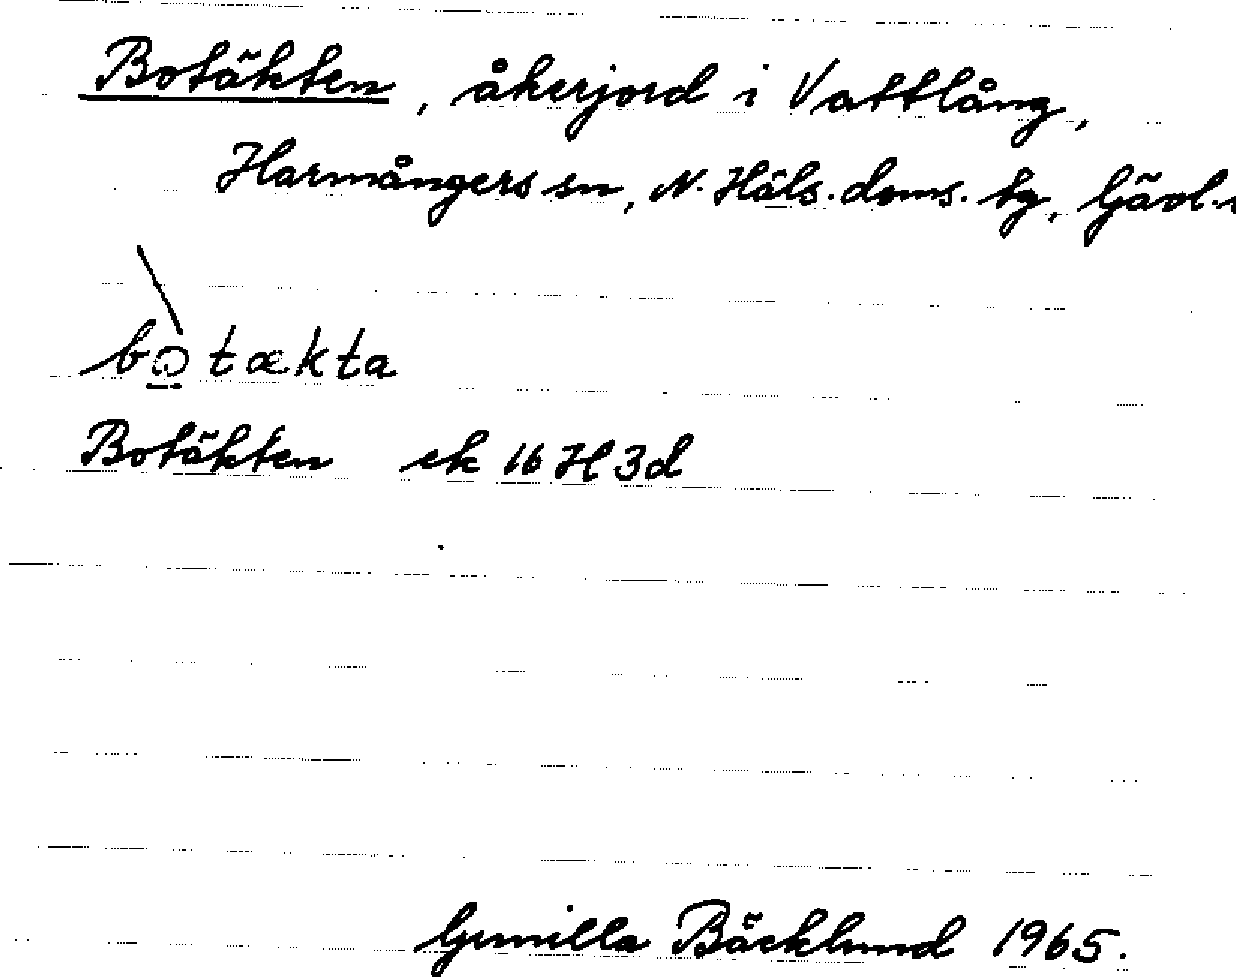 Botäkten, åkerjord i Vattlång,
Harmångers sn, N. Häls. doms. tg, Gävl.
bo̲tækta
Botäkten ek 16 H 3d
Gunilla Bäcklund 1965.